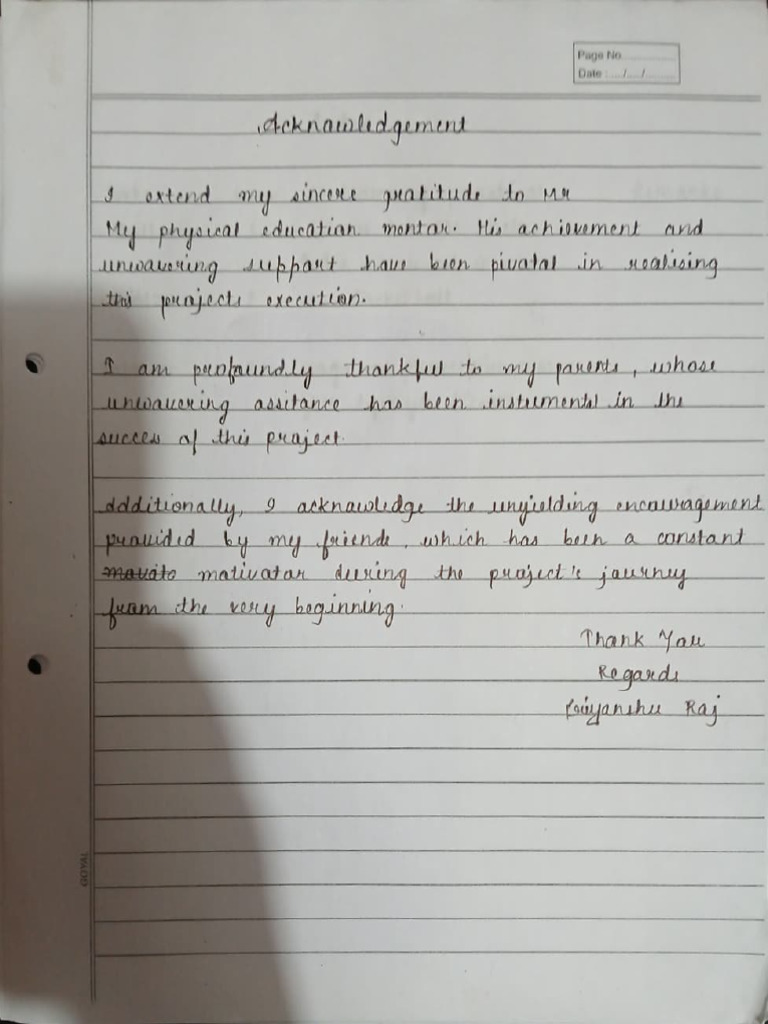 Page No
Date : .../.../......
Acknowledgement
I extend my sincere gratitude to Mr
My physical education mentor. His achievement and
unwavering support have been pivotal in realising
this projects execution.
I am profoundly thankful to my parents, whose
unwavering assitance has been instrumental in the
succes of this project.
Additionally, I acknowledge the unyielding encouragement
provided by my friends, which has been a constant
motivator during the project's journey
from the very beginning.
Thank You
Regards
Priyanshu Raj
GOYAL